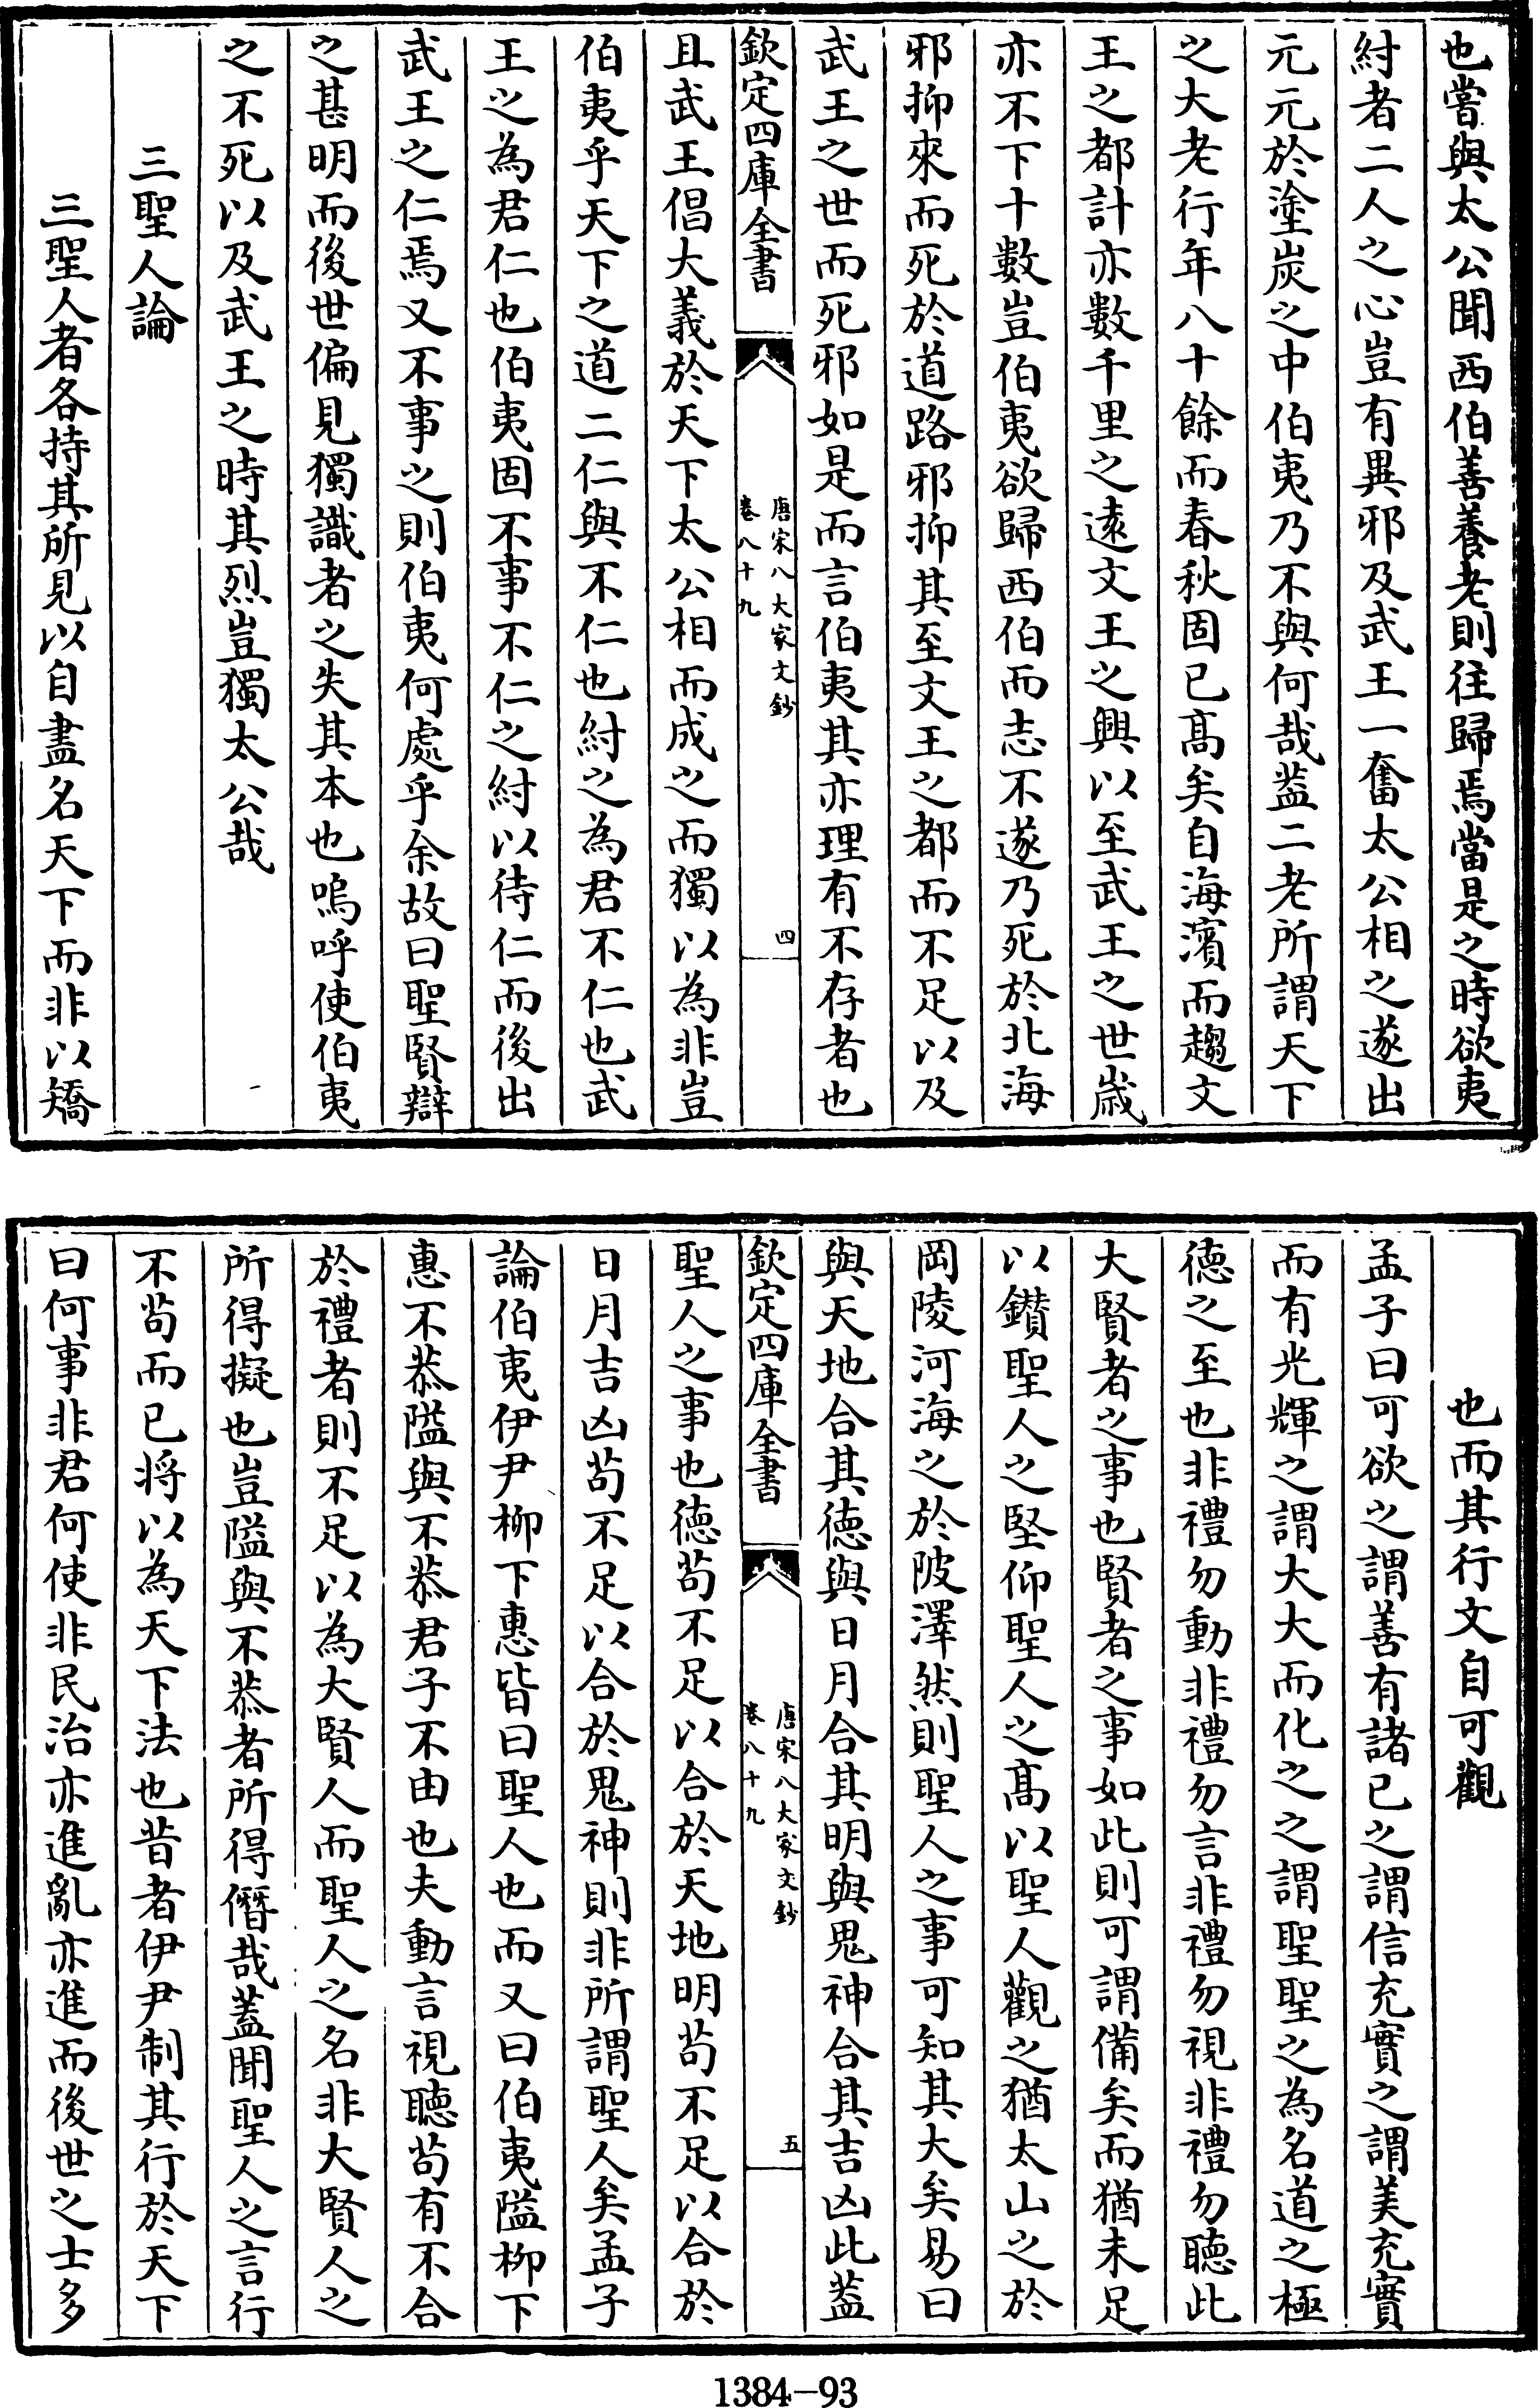 也嘗與太公聞西伯善養老則往歸焉當是之時欲夷
紂者二人之心豈有異邪及武王一奮太公相之遂出
元元於塗炭之中伯夷乃不與何哉葢二老所謂天下
之大老行年八十餘而春秋固已髙矣自海濱而趨文
王之都計亦數千里之逺文王之興以至武王之世嵗
亦不下十數豈伯夷欲歸西伯而志不遂乃死於北海
邪抑來而死於道路邪抑其至文王之都而不足以及
武王之世而死邪如是而言伯夷其亦理有不存者也
欽定四庫全書
唐宋八大家文鈔
卷八十九
四
且武王倡大義於天下太公相而成之而獨以為非豈
伯夷乎天下之道二仁與不仁也紂之為君不仁也武
王之為君仁也伯夷固不事不仁之紂以待仁而後出
武王之仁焉又不事之則伯夷何處乎余故曰聖賢辯
之甚明而後世偏見獨識者之失其本也嗚呼使伯夷
之不死以及武王之時其烈豈獨太公哉
三聖人論
三聖人者各持其所見以自盡名天下而非以矯
也而其行文自可觀
孟子曰可欲之謂善有諸已之謂信充實之謂美充實
而有光輝之謂大大而化之之謂聖聖之為名道之極
徳之至也非禮勿動非禮勿言非禮勿視非禮勿聽此
大賢者之事也賢者之事如此則可謂備矣而猶未足
以鑚聖人之堅仰聖人之髙以聖人觀之猶太山之於
岡陵河海之於陂澤然則聖人之事可知其大矣易曰
與天地合其徳與日月合其明與鬼神合其吉凶此葢
欽定四庫全書
唐宋八大家文鈔
卷八十九
五
聖人之事也徳茍不足以合於天地明茍不足以合於
日月吉凶茍不足以合於鬼神則非所謂聖人矣孟子
論伯夷伊尹柳下惠皆曰聖人也而又曰伯夷隘柳下
惠不恭隘與不恭君子不由也夫動言視聽茍有不合
於禮者則不足以為大賢人而聖人之名非大賢人之
所得擬也豈隘與不恭者所得僭哉蓋聞聖人之言行
不茍而已将以為天下法也昔者伊尹制其行於天下
曰何事非君何使非民治亦進亂亦進而後世之士多
1384-93